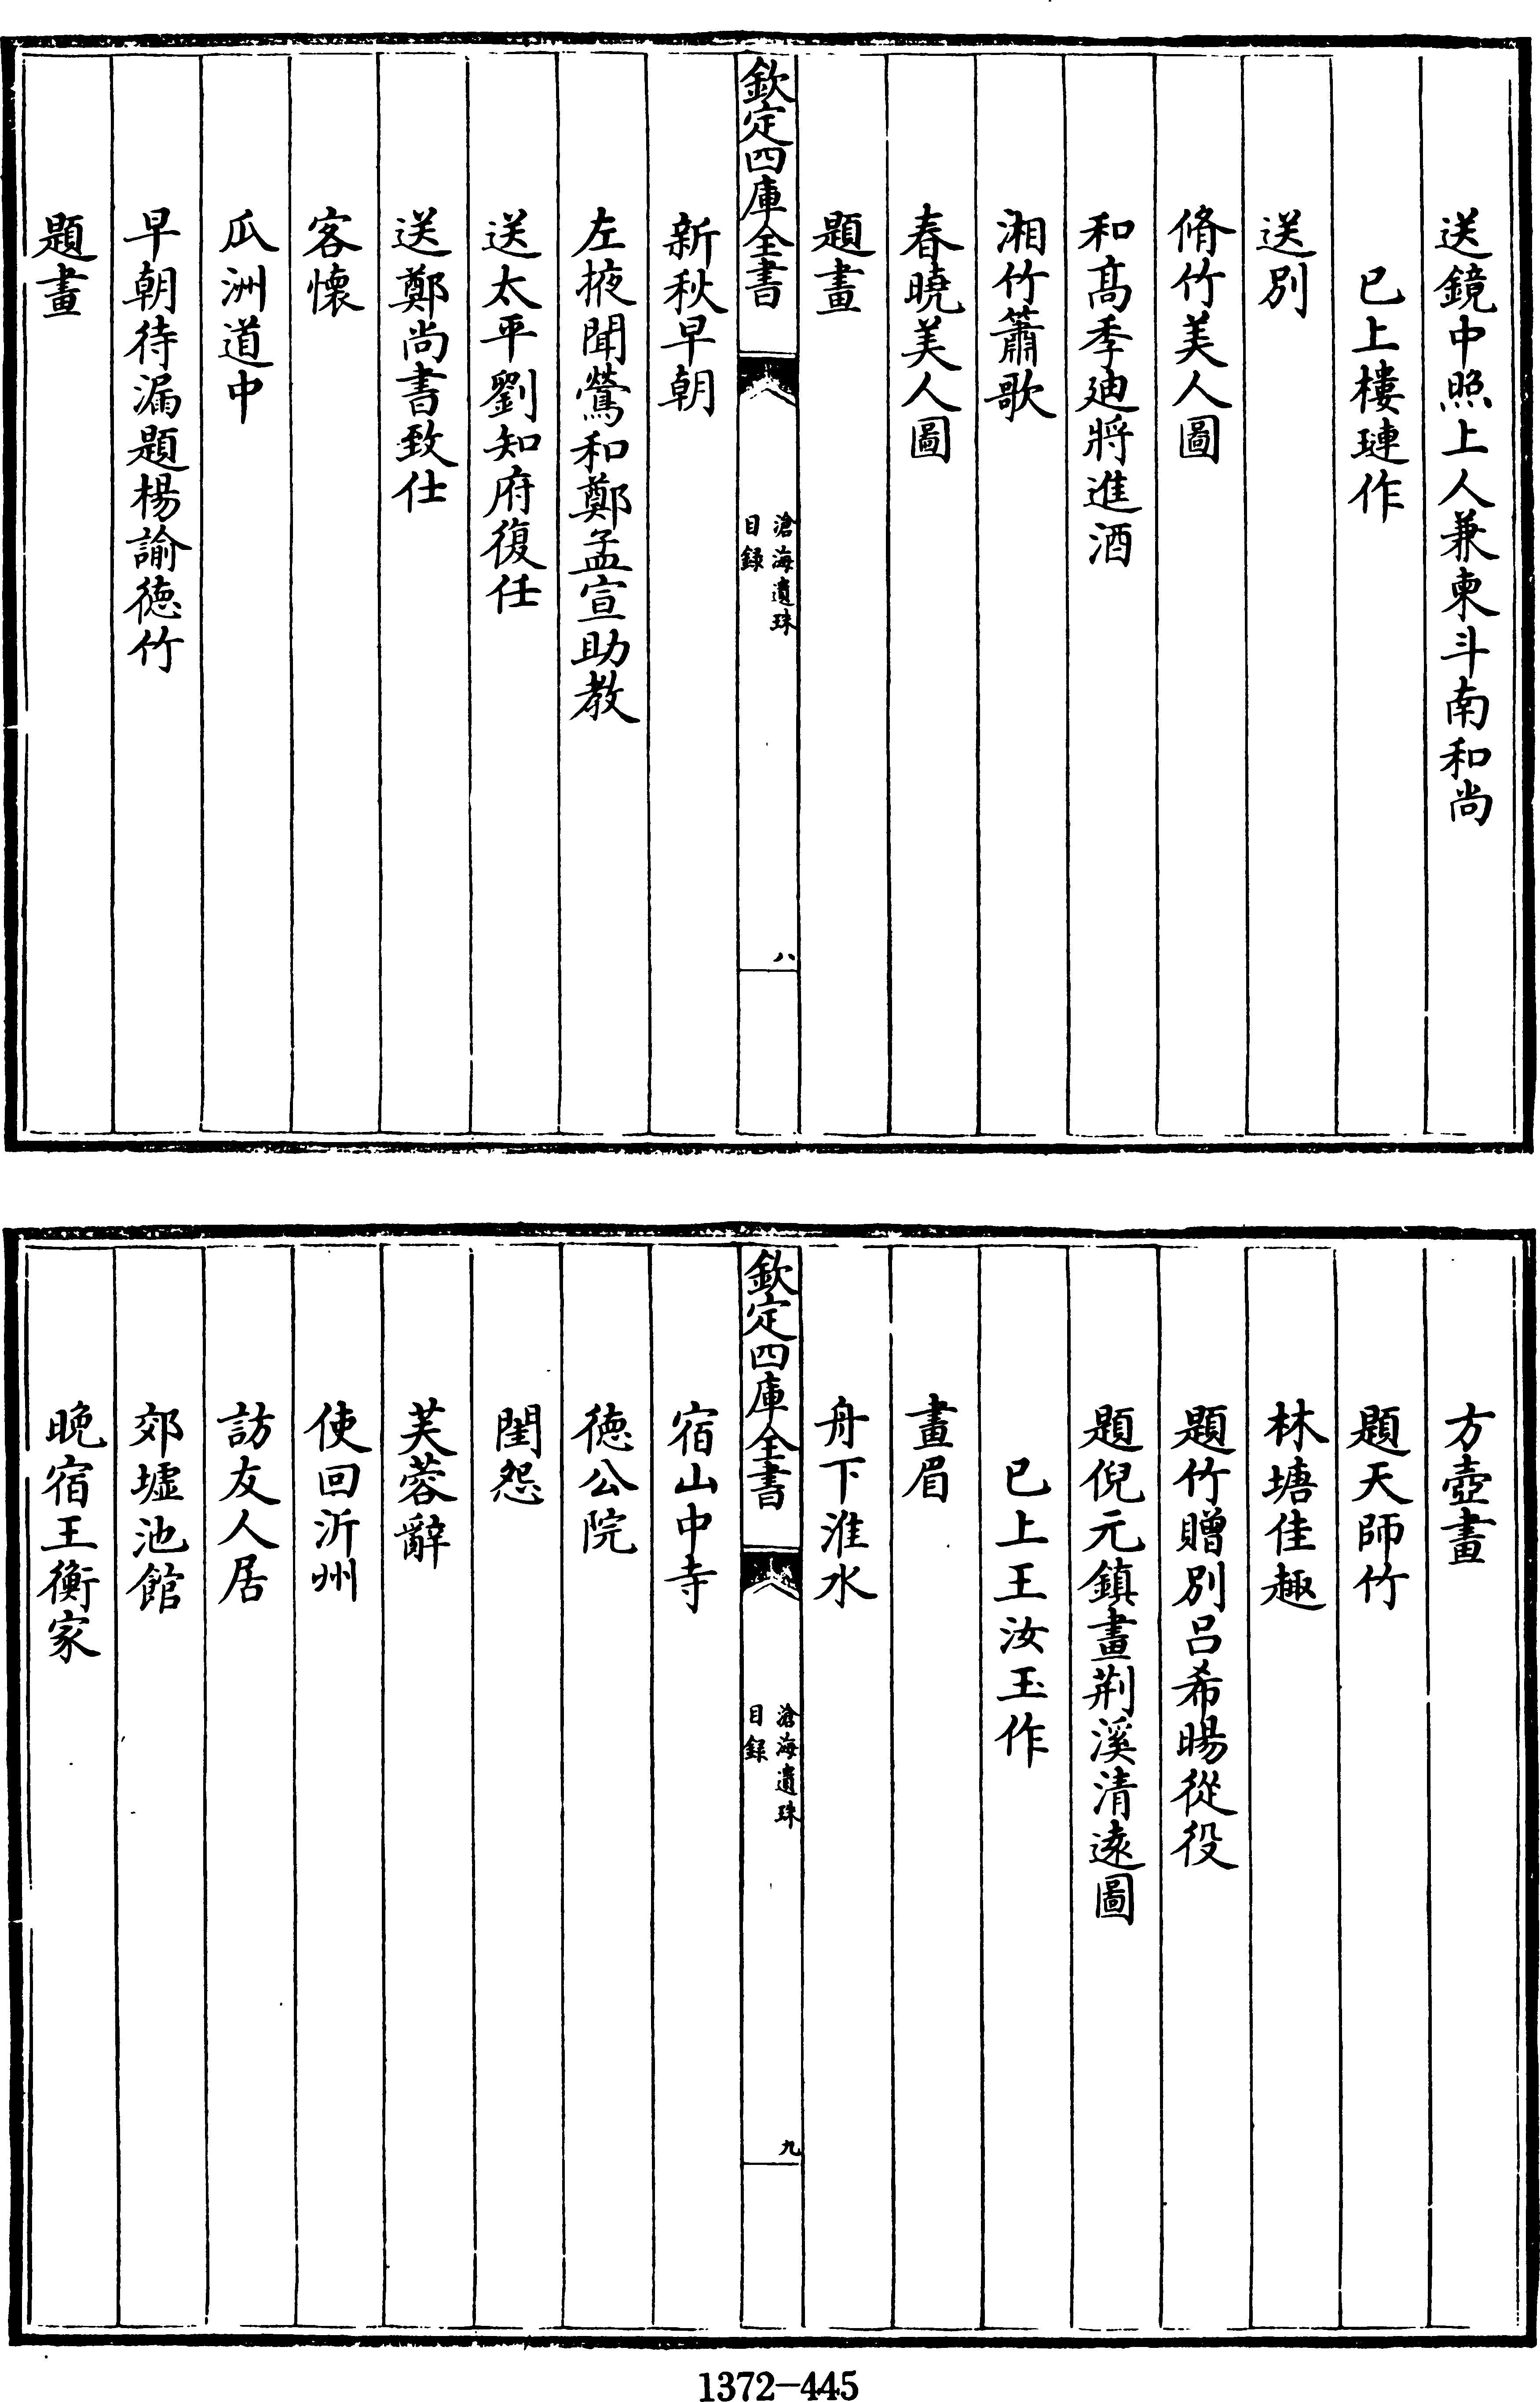 送鏡中照上人兼柬斗南和尚
已上樓璉作
送別
脩竹美人圖
和髙季廸將進酒
湘竹簫歌
春曉美人圖
題畫
欽定四庫全書
滄海遺珠
目録
八
新秋早朝
左掖聞鶯和鄭孟宣助教
送太平劉知府復任
送鄭尚書致仕
客懐
瓜洲道中
早朝待漏題楊諭徳竹
題畫
方壺畫
題天師竹
林塘佳趣
題竹贈別呂希暘從役
題倪元鎮畫荆溪清逺圖
已上王汝玉作
畫眉
舟下淮水
欽定四庫全書
滄海遺珠
目録
九
宿山中寺
徳公院
閨怨
芙蓉辭
使回沂州
訪友人居
郊墟池館
晚宿王衡家
1372-445